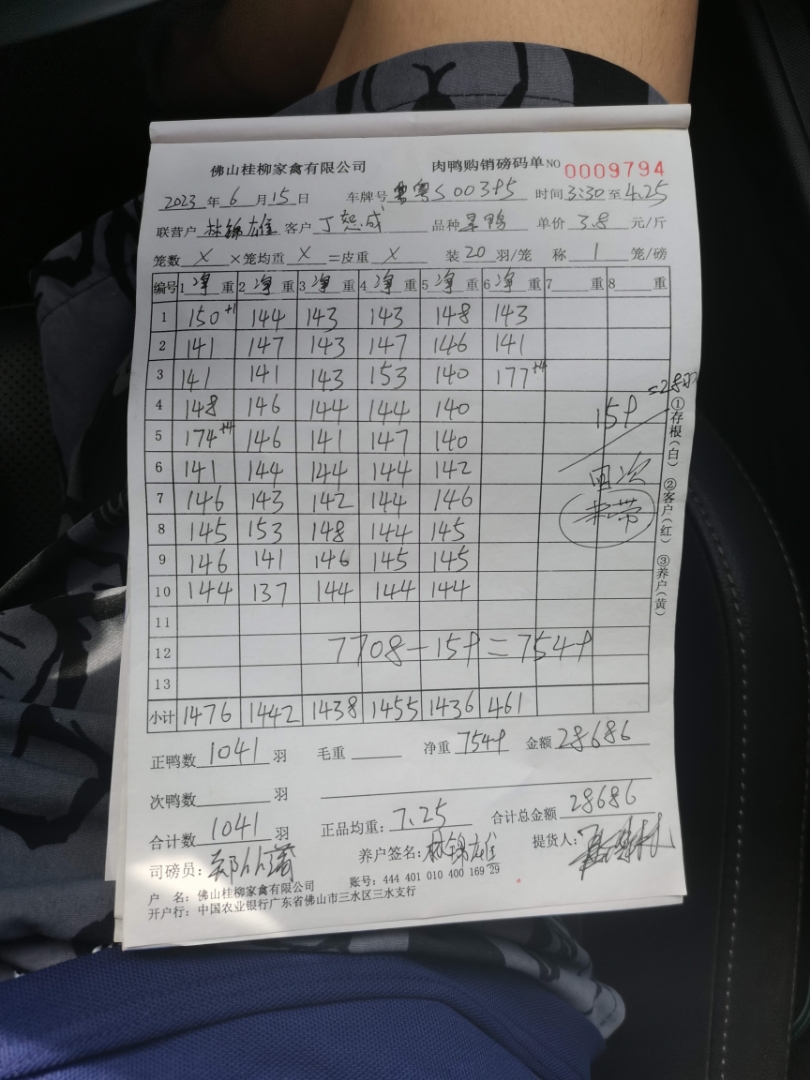 佛山桂柳家禽有限公司 肉鸭购销磅码单 NO 0009794
2023年6月15日 车牌号 粤S00395 时间3:30至4.25
联营户 林锦雄 客户 品种 单价 3.8 元/斤
笼数 X ×笼均重 X =皮重 X 装20羽/笼 称 1 笼/磅
编号 1净重 2净重 3净重 4净重 5净重 6净重 7重 8重
1 150+1 144 143 143 148 143
2 141 147 143 147 146 141
3 141 141 143 153 140 177+4
4 148 146 144 144 140
5 174+4 146 141 147 140
6 141 144 144 144 142
7 146 143 142 144 146
8 145 153 148 144 145
9 146 141 146 145 145
10 144 137 144 144 144
11
12 7708-159=7549
13
小计 1476 1442 1438 1455 1436 461
159
①存根(白) ②客户(红) ③养户(黄)
正鸭数 1041 羽 毛重 净重 7549 金额 28686
次鸭数 羽
合计数 1041 羽 正品均重: 7.25 合计总金额 28686
司磅员: 养户签名: 林锦雄 提货人:
户 名: 佛山桂柳家禽有限公司 账号: 444 401 010 400 169 29
开户行: 中国农业银行广东省佛山市三水区三水支行